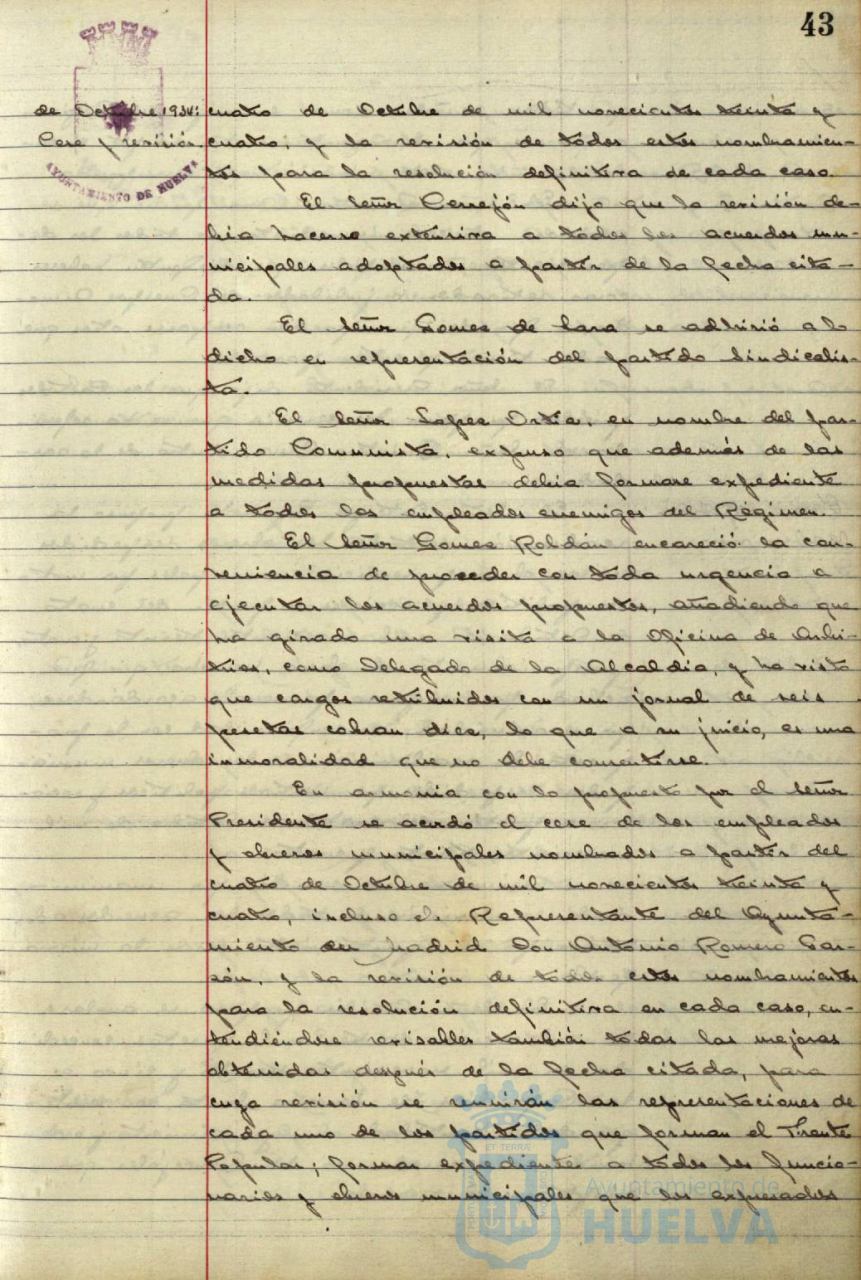 43
de Octubre 1934:
Cese y revisión.
AYUNTAMIENTO DE HUELVA
cuatro de Octubre de mil novecientos treinta y
cuatro, y la revisión de todos estos nombramien-
tos para la resolución definitiva de cada caso.
El señor Cerrejón dijo que la revisión de-
bia hacerse extensiva a todos los acuerdos mu-
nicipales adoptados a partir de la fecha cita-
da.
El señor Gomez de Lara se adhirió a lo
dicho en representación del partido Sindicalis-
ta.
El señor Lopez Ortiz, en nombre del par-
tido Comunista, expuso que además de las
medidas propuestas debia formarse expediente
a todos los empleados enemigos del Régimen.
El señor Gomez Roldán encareció la con-
veniencia de proceder con toda urgencia a
ejecutar los acuerdos propuestos, añadiendo que
ha girado una visita a la Oficina de Arbi-
trios, como Delegado de la Alcaldia, y ha visto
que cargos retribuidos con un jornal de seis
pesetas cobran diez, lo que a su juicio, es una
inmoralidad que no debe consentirse.
En armonia con lo propuesto por el señor
Presidente se acordó el cese de los empleados
y obreros municipales nombrados a partir del
cuatro de Octubre de mil novecientos treinta y
cuatro, incluso el Representante del Ayunta-
miento en Madrid Don Antonio Romero Gar-
zón, y la revisión de todos estos nombramientos
para la resolución definitiva en cada caso, en-
tendiéndose revisables también todas las mejoras
obtenidas después de la fecha citada, para
cuya revisión se reunirán las representaciones de
cada uno de los partidos que forman el Frente
Popular; formar expediente a todos los funcio-
narios y obreros municipales que los expresados
Ayuntamiento de
HUELVA